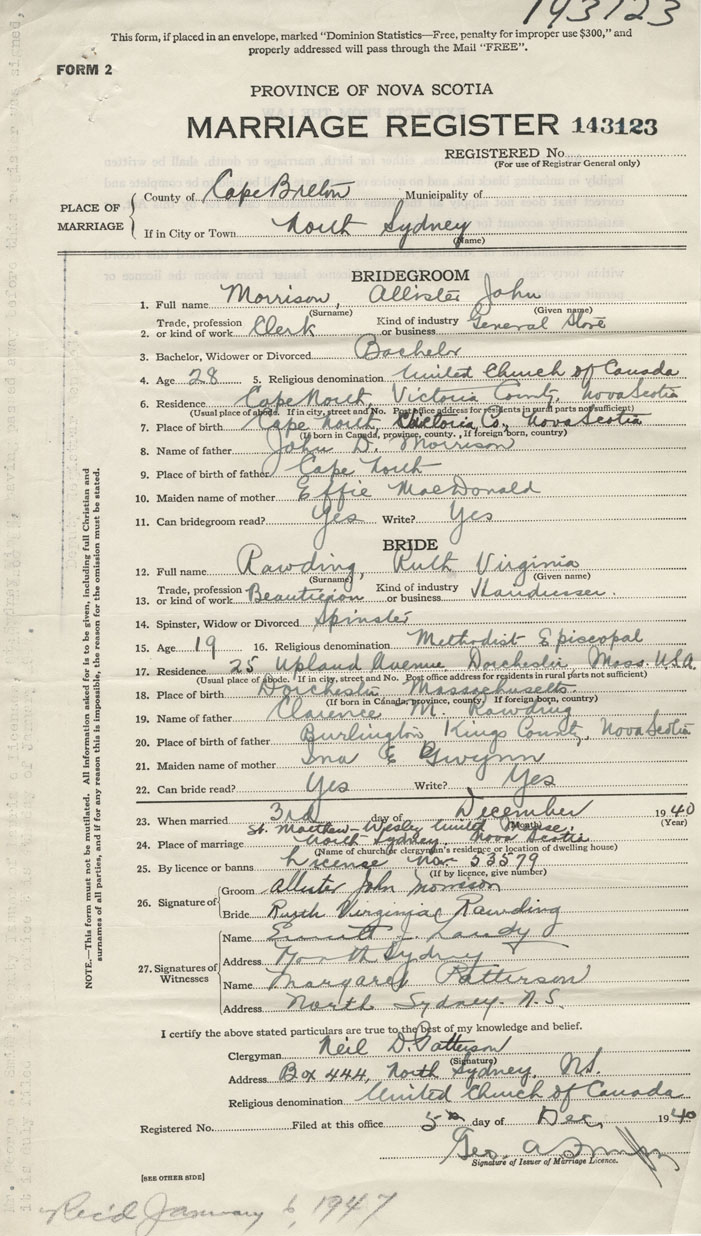 143123
This form, if placed in an envelope, marked "Dominion Statistics—Free, penalty for improper use $300," and
properly addressed will pass through the Mail "FREE".
FORM 2
PROVINCE OF NOVA SCOTIA
MARRIAGE REGISTER 143123
REGISTERED No.
(For use of Registrar General only)
PLACE OF MARRIAGE
County of Cape Breton Municipality of
If in City or Town North Sydney
(Name)
BRIDEGROOM
1. Full name Morrison, Allister John
(Surname) (Given name)
2. Trade, profession or kind of work Clerk Kind of industry or business General Store
3. Bachelor, Widower or Divorced Bachelor
4. Age 28 5. Religious denomination United Church of Canada
6. Residence Cape North, Victoria County, Nova Scotia
(Usual place of abode. If in city, street and No. Post office address for residents in rural parts not sufficient)
7. Place of birth Cape North, Victoria Co., Nova Scotia
(If born in Canada, province, county. If foreign born, country)
8. Name of father John D. Morrison
9. Place of birth of father Cape North
10. Maiden name of mother Effie MacDonald
11. Can bridegroom read? Yes Write? Yes
BRIDE
12. Full name Rawding, Ruth Virginia
(Surname) (Given name)
13. Trade, profession or kind of work Beautician Kind of industry or business Hairdresser.
14. Spinster, Widow or Divorced Spinster
15. Age 19 16. Religious denomination Methodist Episcopal
17. Residence 25 Upland Avenue Dorchester Mass. U.S.A.
(Usual place of abode. If in city, street and No. Post office address for residents in rural parts not sufficient)
18. Place of birth Dorchester Massachusetts.
(If born in Canada, province, county. If foreign born, country)
19. Name of father Clarence M. Rawding
20. Place of birth of father Burlington, Kings County, Nova Scotia
21. Maiden name of mother Ina E Gwynn
22. Can bride read? Yes Write? Yes
23. When married 3rd day of December 1940
(Month) (Year)
St. Matthew-Wesley United Manse,
24. Place of marriage North Sydney, Nova Scotia
(Name of church or clergyman's residence or location of dwelling house)
25. By licence or banns License No. 53579
(If by licence, give number)
26. Signature of
Groom Allister John Morrison
Bride Ruth Virginia Rawding
27. Signatures of Witnesses
Name
Address North Sydney
Name Margaret Patterson
Address North Sydney. N.S.
I certify the above stated particulars are true to the best of my knowledge and belief.
Clergyman Neil D. Patterson
(Signature)
Address Box 444, North Sydney, N.S.
Religious denomination United Church of Canada
Registered No. Filed at this office 5th day of Dec, 1940
Geo. A
Signature of Issuer of Marriage Licence.
[SEE OTHER SIDE]
Rec'd January 6, 1947
NOTE.—This form must not be mutilated. All information asked for is to be given, including full Christian and
surnames of all parties, and if for any reason this is impossible, the reason for the omission must be stated.